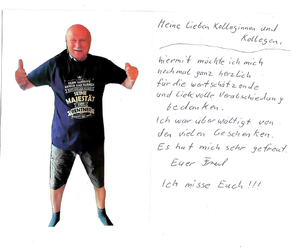 MAJESTÄT
Meine lieben Kolleginnen und
Kollegen,
hiermit möchte ich mich
nochmal ganz herzlich
für die wertschätzende
und liebevolle Verabschiedung
bedanken.
Ich war überwältigt von
den vielen Geschenken.
Es hat mich sehr gefreut.
Euer
Ich misse Euch!!!